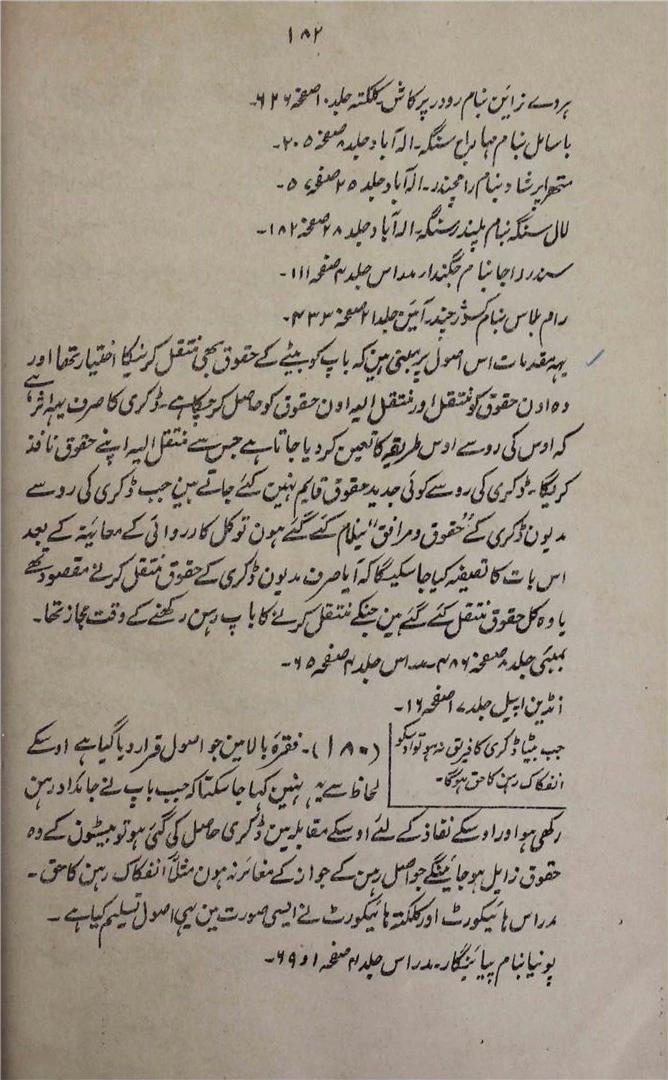 ۱۸۲
ہردے نراین بنام رودر پرکاش۔ کلکتہ جلد ۱۰ صفحہ ۶۲۶۔
باسامل بنام مہاراج سنگہ۔ الہ آباد جلد ۸ صفحہ ۲۰۵۔
متھرا پرشاد بنام رامچندر۔ الہ آباد جلد ۲۵ صفحہ ۵۷۔
لال سنگہ بنام پلیندر سنگہ۔ الہ آباد جلد ۲۸ صفحہ ۱۸۲۔
سندر راجا بنام جگندار مدراس جلد ۴ صفحہ ۱۱۱۔
رام بلاس بنام کشور چندر۔ آئین جلد ۲۱ صفحہ ۴۳۳۔
یہہ مقدمات اس اصول پر مبنی ہین کہ باپ کو بیٹے کے حقوق بھی منتقل کرنیکا اختیار تھا اور
وہ اون حقوق کو منتقل اور منتقل الیہ اون حقوق کو حاصل کر چکا ہے۔ ڈکری کا صرف یہہ اثر ہے
کہ اوس کی رو سے اوس طریقہ کا تعین کر دیا جاتا ہے جس سے منتقل الیہ اپنے حقوق نافذ
کریگا۔ ڈکری کی رو سے کوئی جدید حقوق قایم نہین کئے جاتے ہین جب ڈکری کی رو سے
مدیون ڈکری کے "حقوق و مرافق" نیلام کئے گئے ہون تو کل کارروائی کے معائنہ کے بعد
اس بات کا تصفیہ کیا جا سکیگا کہ آیا صرف مدیون ڈکری کے حقوق منتقل کرنے مقصود تھے
یا وہ کل حقوق منتقل کئے گئے ہین جنکے منتقل کرنے کا باپ رہن رکھنے کے وقت مجاز تھا۔
بمبئی جلد ۸ صفحہ ۴۸۶۔ مدراس جلد ۴ صفحہ ۶۵۔
انڈین اپیل جلد ۷ صفحہ ۱۶۔
جب بیٹا ڈکری کا فریق نہ ہو تو اوسکو
انفکاک رہن کا حق ہوگا۔
(۱۸۰)۔ فقرۂ بالا مین جو اصول قرار دیا گیا ہے اوسکے
لحاظ سے یہ نہین کہا جا سکتا کہ جب باپ نے جائداد رہن
رکھی ہو اور اوسکے نفاذ کے لئے اوسکے مقابلہ مین ڈکری حاصل کی گئی ہو تو بیٹون کے وہ
حقوق زایل ہو جائینگے جو اصل رہن کے جواز کے مغائر نہ ہون مثلاً انفکاک رہن کا حق۔
مدراس ہائیکورٹ اور کلکتہ ہائیکورٹ نے ایسی صورت مین یہی اصول تسلیم کیا ہے۔
پونیا بنام پیائنگار۔ مدراس جلد ۴ صفحہ ۱ و ۶۹۔